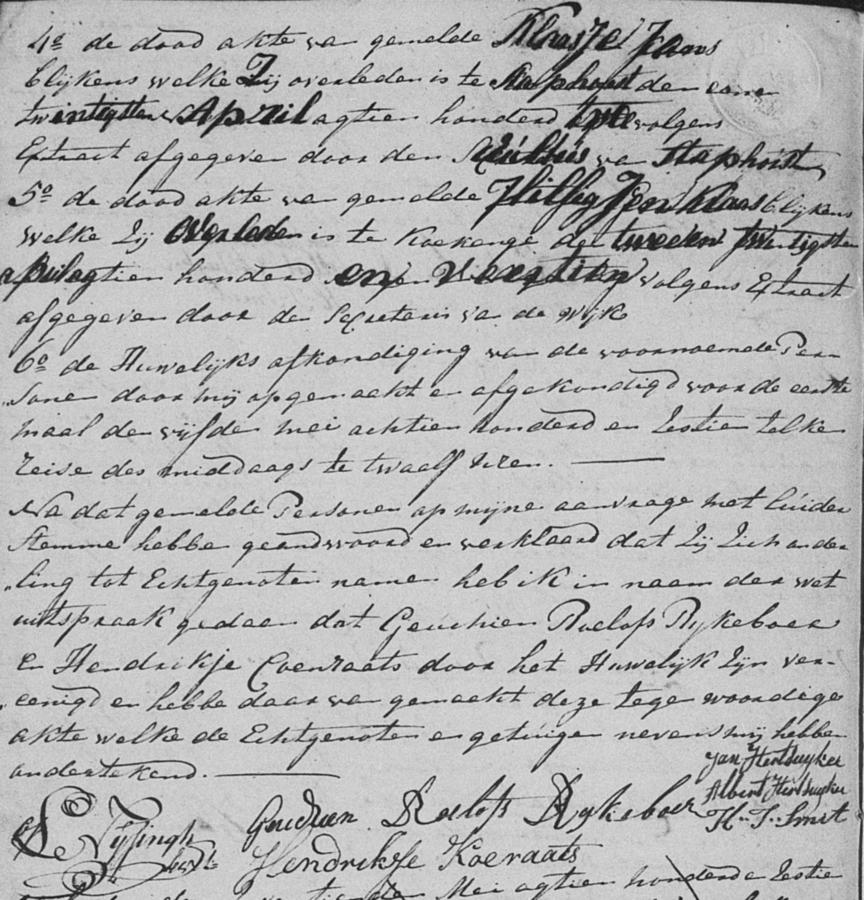 4º de dood akte van gemelde Klaasje Jans
blijkens welke Zij overleden is te Staphorst den een en
twintigsten April agtien honderd volgens
Extract afgegeven door den Scultus van Staphorst,
5º de dood akte van gemelde Hilligjen Klaas blijkens
welke Zij Overleden is te Koekange den tween twintigsten
april agtien honderd en veertien volgens Extract
afgegeven door de Secretaris van de Wijk
6º de Huwelijks afkondiging van de voornoemde Per-
sonen door mij opgemaakt en afgekondigd voor de eerste
maal den vijfden mei achtien honderd en Zestien telken
reise des middaags te twaalf Uren.
Na dat gemelde Personen op mijne aanvrage met luider
Stemme hebben geandwoord en verklaard dat Zij Zich onder
ling tot Echtgenoten namen heb ik in naam der wet
uitspraak gedaan dat Geuchien Roelofs Rykeboer
en Hendrikje Coenraats door het Huwelijk Zijn ver-
eenigd en hebbe daar van gemaakt deze tegenwoordige
akte welke de Echtgenoten en getuigen nevens mij hebben
ondertekend.
Jan Hertsuyker
Albert Hertsuyker
H. S. Smit
Nysingh
Geuchien Roelofs Rykeboer
Hendrikje Koeraats
Mei agtien honderd Zestien